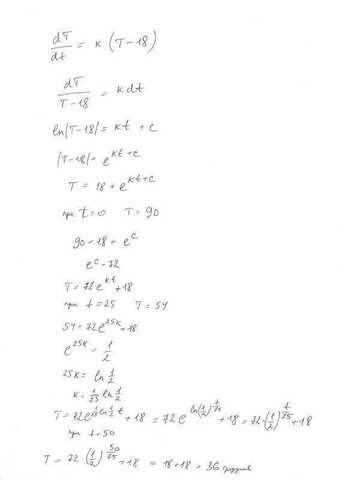 dT/dt = k (T-18)
dT/T-18 = kdt
ln|T-18| = kt + c
|T-18| = e^{kt+c}
T = 18 + e^{kt+c}
при t=0 T=90
90=18+e^c
e^c=72
T=72e^{kt}+18
при t=25 T=54
54=72e^{25k}+18
e^{25k}=1/2
25k=ln 1/2
k=1/25 ln 1/2
T=72e^{1/25 ln 1/2 t}+18=72e^{ln(1/2)^{t/25}}+18=72·(1/2)^{t/25}+18
при t=50
T=72·(1/2)^{50/25}+18=18+18=36 градусов